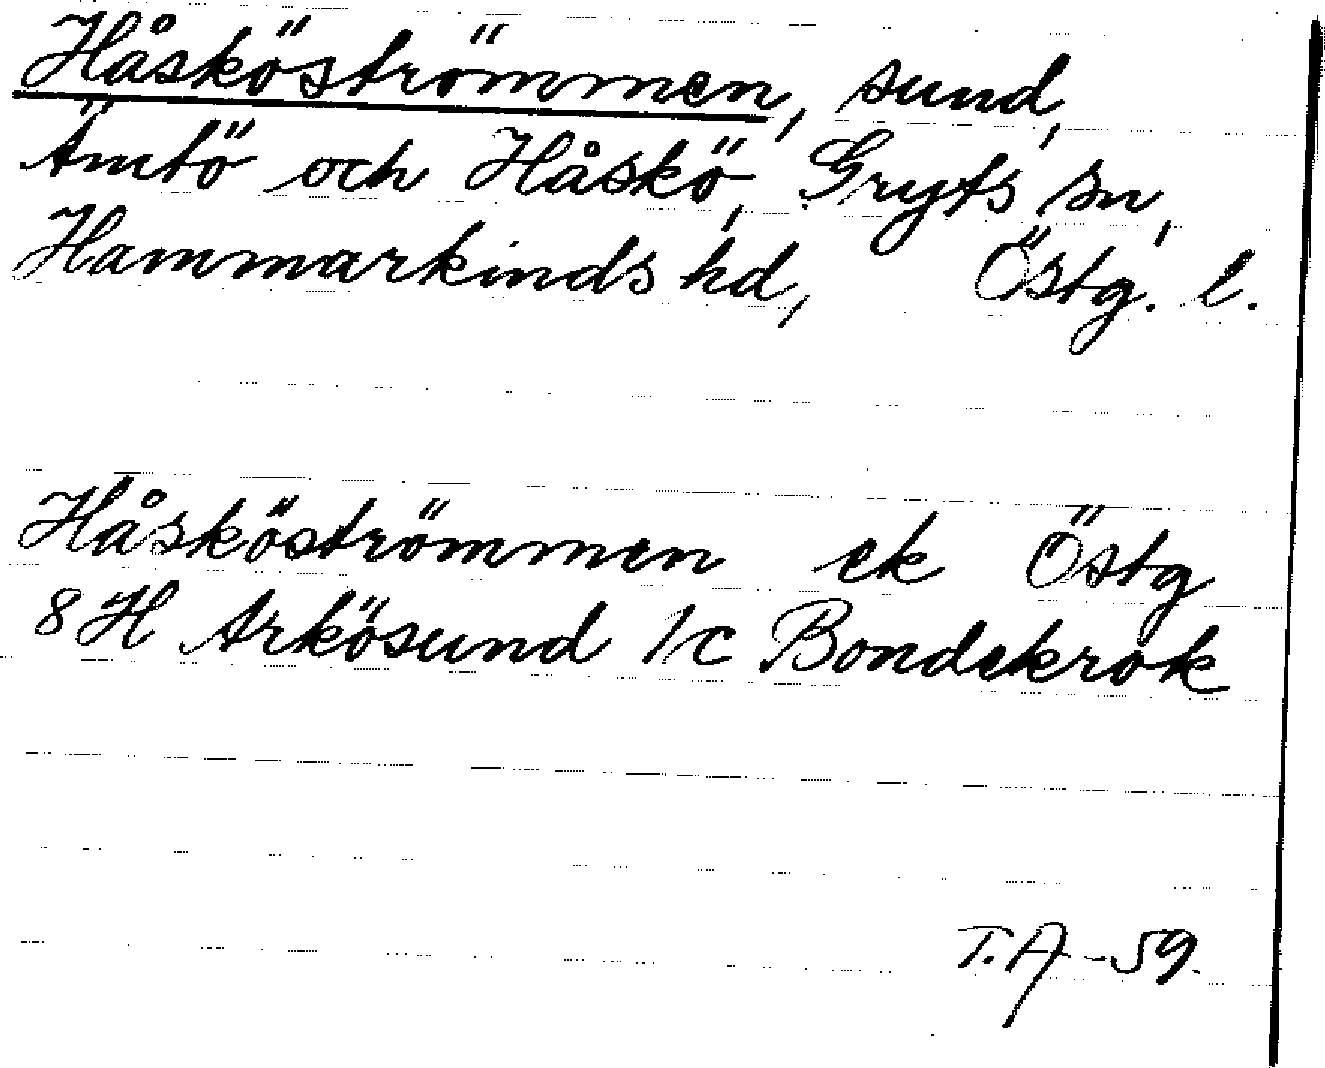 Håsköströmmen, sund,
Ämtö och Håskö, Gryts sn,
Hammarkinds hd, Östg. l.
Håsköströmmen ek Östg
8H Arkösund 1/c Bondekrok
T.A -59